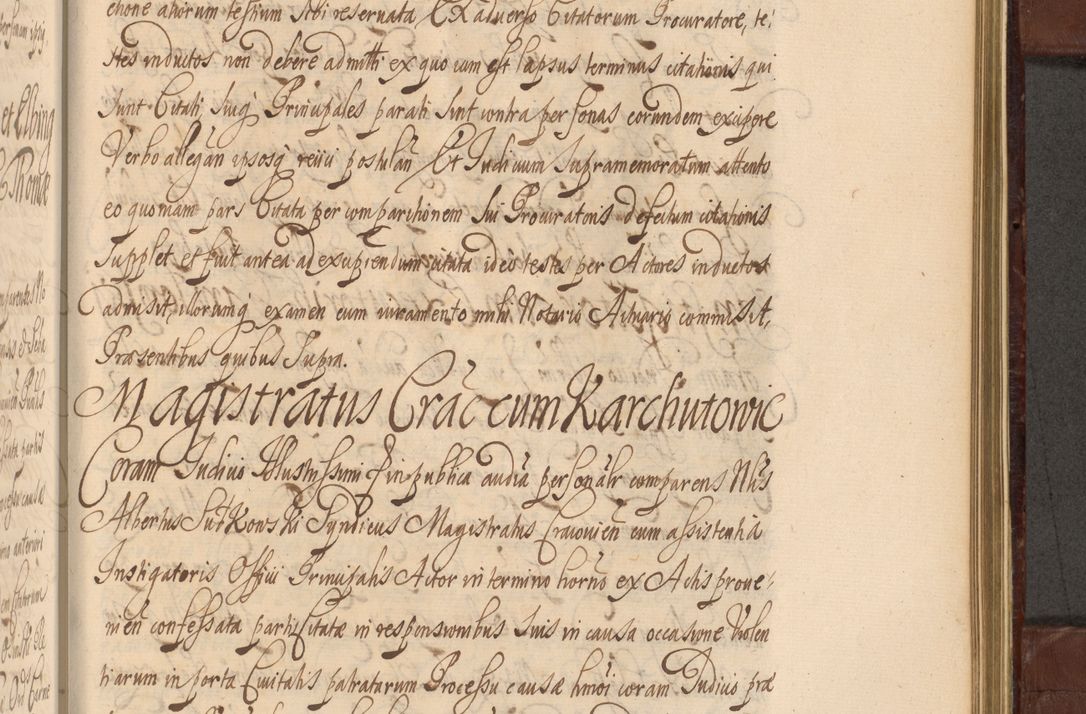 ctione aliorum testium sibi reservata Ex adverso Citatorum Procuratore, te-
stes inductos non debere admitti ex quo cum est lapsus terminus citationis qui
sunt Citati, suiq Principales parati sint contra personas eorundem excipere
Verbo allegan ipsosq reiici postulan Et Iudicium supramemoratum attento
eo quoniam pars Citata per comparitionem sui Procuratoris defectum citationis
supplet et fuit antea ad excipiendum citata ideo testes per Actores inductos
admisit, illorumq examen cum iuramento mihi Notario Actuario commisit,
Præsentibus quibus supra.
Magistratus Crac cum Karchutowic
Coram Iudicio Illustrissimi in publica audia personalr comparens Nlis
Albertus Sutkowski Syndicus Magistratus Cracovien cum assistentia
Instigatoris Officii Principalis Actor in termino horno ex Actis prove-
nien confessata parti Citatæ in responsionibus suis in causa occasione Violen
tiarum in porta Civitatis patratarum Processu causæ hmoi coram Iudicio præ
et Elbing
Thomæ
anteriori